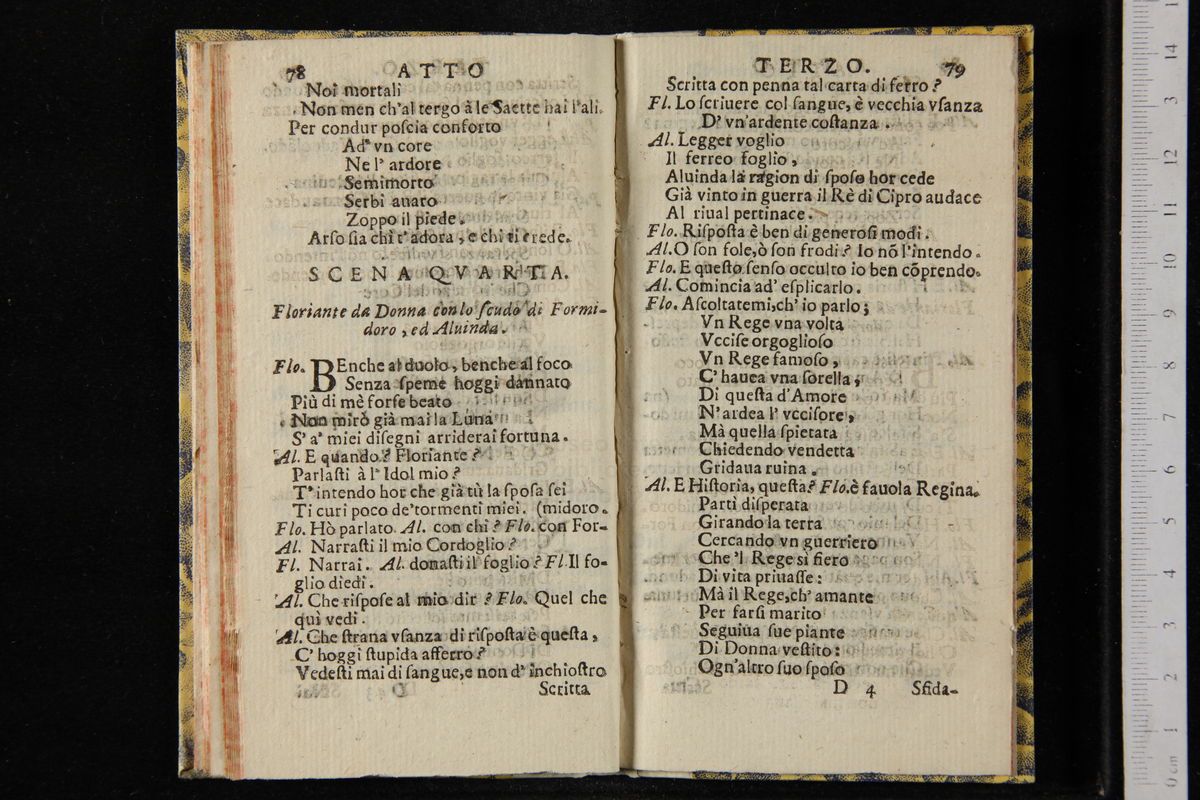 78 ATTO
Noi mortali
Non men ch'al tergo à le Saette hai l'ali.
Per condur poſcia conforto
Ad' vn core
Ne l' ardore
Semimorto
Serbi auaro
Zoppo il piede.
Arſo ſia chi t'adora, e chi ti crede.
SCENA QVARTA.
Floriante da Donna con lo ſcudo di Formi-
doro, ed Aluinda.
Flo. BEnche al duolo, benche al foco
Senza ſpeme hoggi dannato
Più di mè forſe beato
Non mirò già mai la Luna
S' a' miei diſegni arriderai fortuna.
Al. E quando? Floriante?
Parlaſti à l' Idol mio?
T' intendo hor che già tù la ſpoſa ſei
Ti curi poco de' tormenti miei. (midoro.
Flo. Hò parlato. Al. con chi? Flo. con For-
Al. Narraſti il mio Cordoglio?
Fl. Narrai. Al. donaſti il foglio? Fl Il fo-
glio diedi.
Al. Che riſpoſe al mio dir? Flo. Quel che
quì vedi.
Al. Che ſtrana vſanza di riſpoſta è queſta,
C' hoggi ſtupida afferro?
Vedeſti mai di ſangue, e non d' inchioſtro
Scritta
TERZO. 79
Scritta con penna tal carta di ferro?
Fl. Lo ſcriuere col ſangue, è vecchia vſanza
D' vn'ardente coſtanza.
Al. Legger voglio
Il ferreo foglio,
Aluinda là ragion di ſpoſo hor cede
Già vinto in guerra il Rè di Cipro audace
Al riual pertinace.
Flo. Riſpoſta è ben di generoſi modi.
Al. O ſon fole, ò ſon frodi? Io nõ l'intendo.
Flo. E queſto ſenſo occulto io ben cõprendo.
Al. Comincia ad' eſplicarlo.
Flo. Aſcoltatemi, ch' io parlo;
Vn Rege vna volta
Vcciſe orgoglioſo
Vn Rege famoſo,
C' hauea vna ſorella,
Di queſta d'Amore
N'ardea l' vcciſore,
Mà quella ſpietata
Chiedendo vendetta
Gridaua ruina.
Al. E Hiſtoria, queſta? Flo. è fauola Regina.
Partì diſperata
Girando la terra
Cercando vn guerriero
Che 'l Rege sì fiero
Di vita priuaſſe:
Mà il Rege, ch' amante
Per farſi marito
Seguiua ſue piante
Di Donna veſtito:
Ogn'altro ſuo ſpoſo
D 4 Sfida-